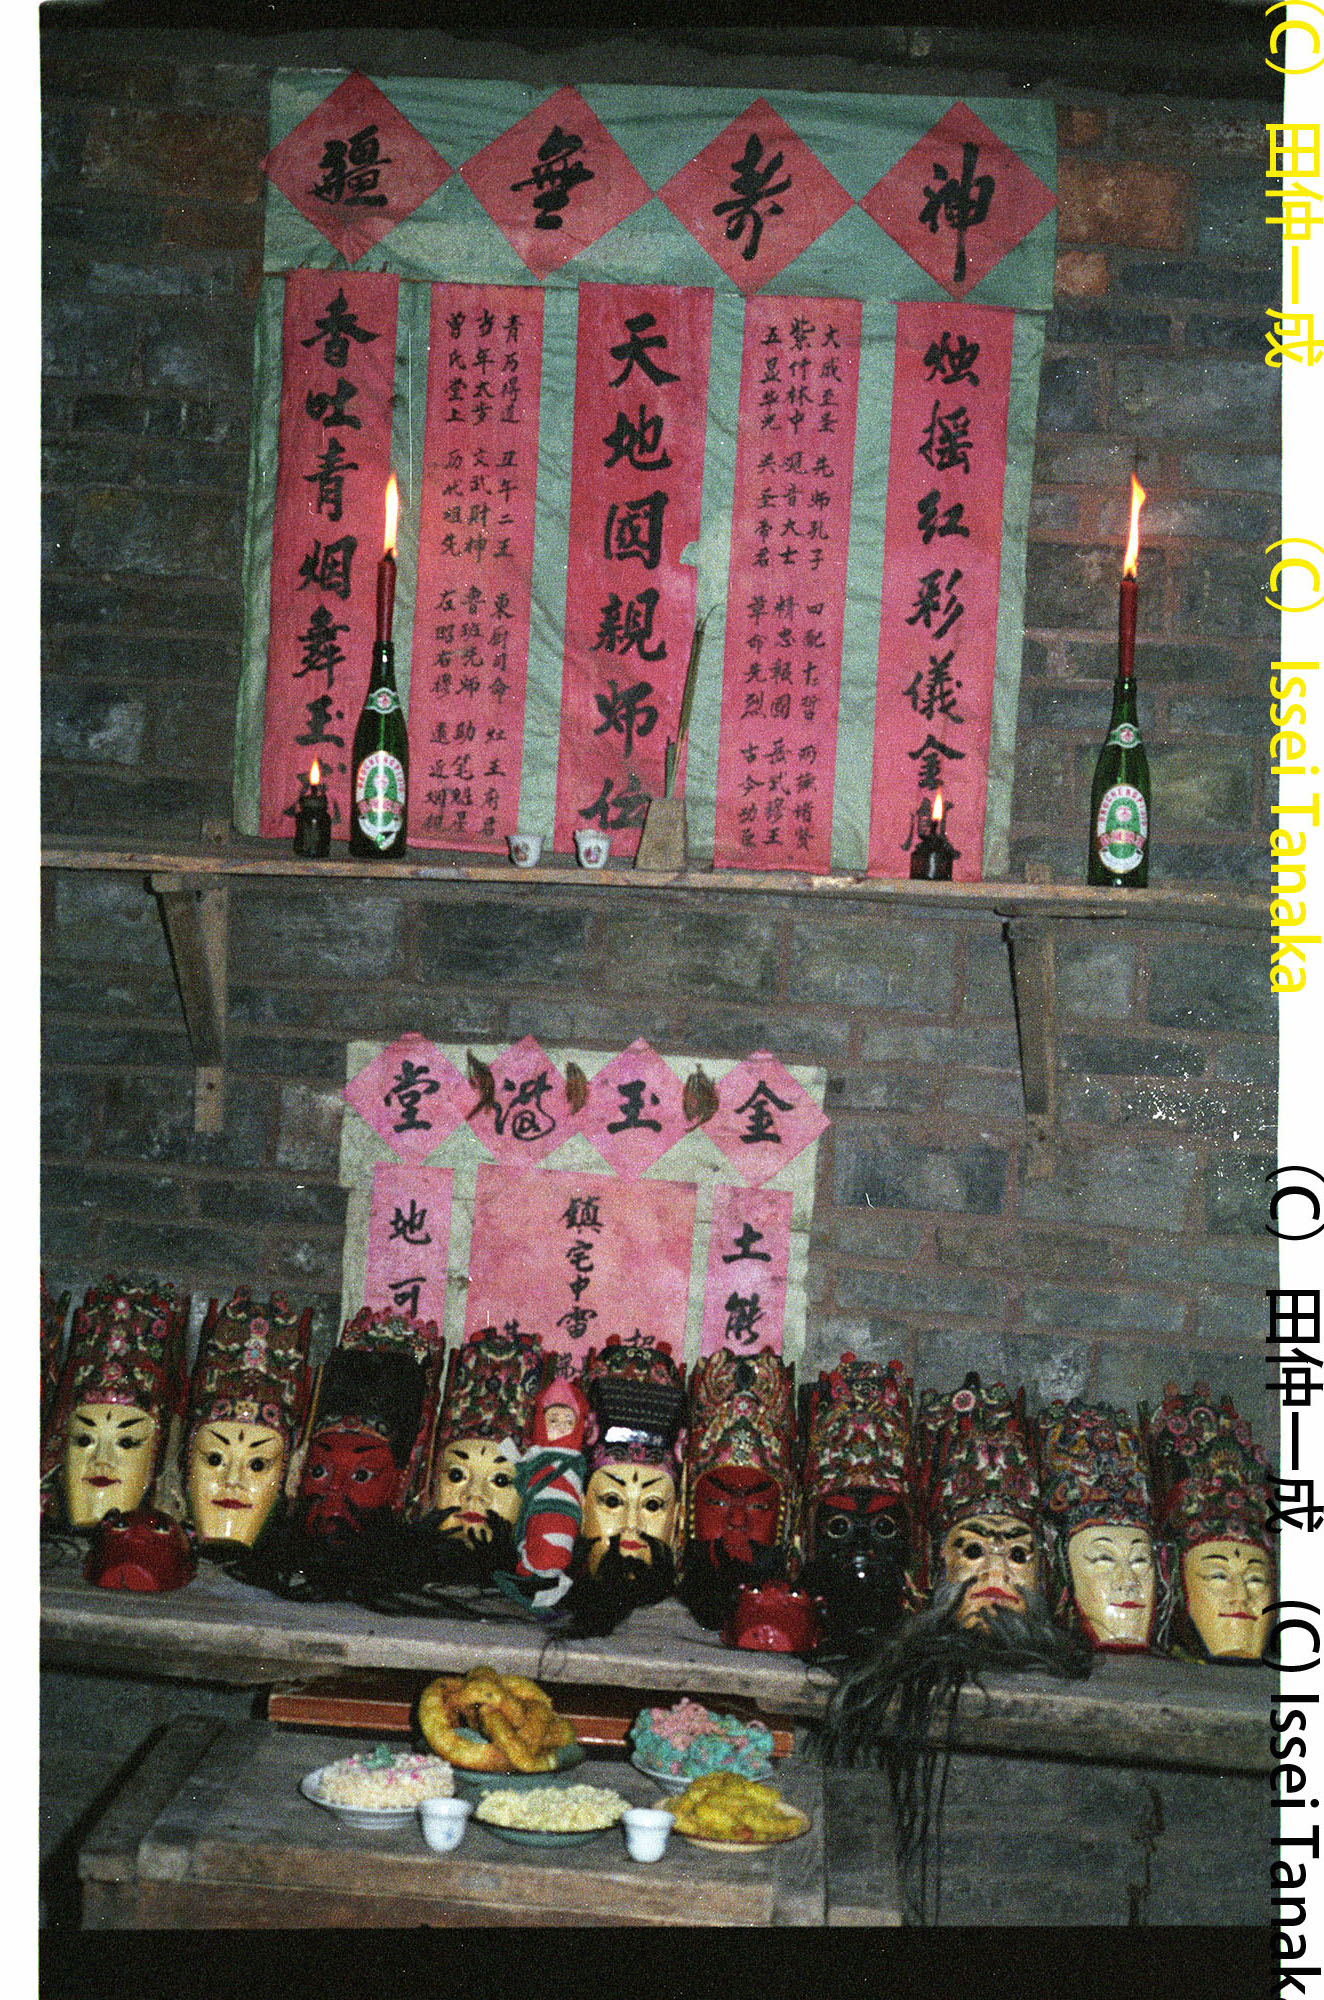 神壽無疆
烛摇红彩儀金
大成至圣 先师孔子 四配十哲 两庑諸贤
紫竹林中 观音大士 精忠報國 岳武穆王
五显华光 关圣帝君 革命先烈 古今功臣
天地國親师位
青苈得道 丑午二王 東厨司命 灶王府君
当年太岁 文武财神 鲁班先师 助笔魁星
曾氏堂上 历代祖先 左昭右穆 遠近
香吐青烟舞玉
金玉满堂
土能
鎮宅中雷
地可
(C) 田仲一成 (C) Issei Tanaka
(C) 田仲一成 (C) Issei Tanak